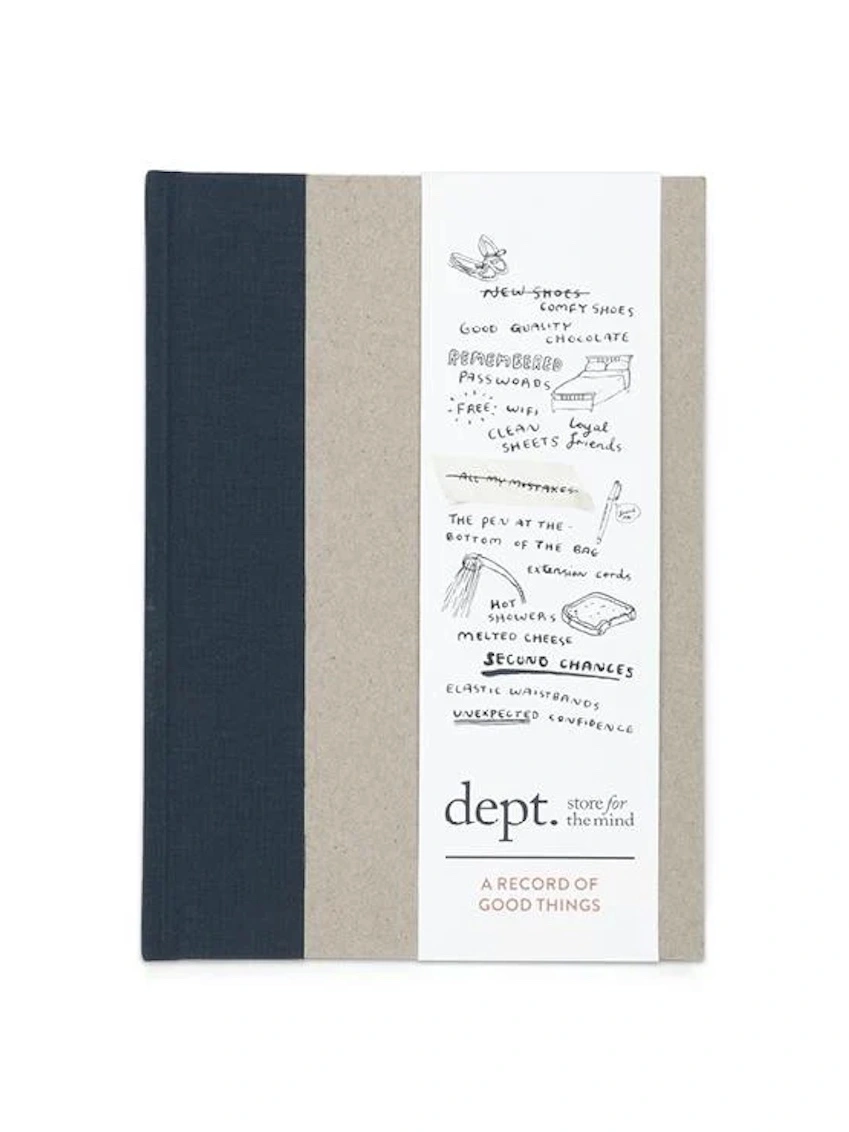 NEW SHOES
COMFY SHOES
GOOD QUALITY
CHOCOLATE
REMEMBERED
PASSWORDS
FREE WIFI
CLEAN
SHEETS
loyal
friends
ALL MY MISTAKES
THE PEN AT THE
BOTTOM OF THE BAG
extension cords
HOT
SHOWERS
MELTED CHEESE
SECOND CHANCES
ELASTIC WAISTBANDS
UNEXPECTED CONFIDENCE
dept. store for
the mind
A RECORD OF
GOOD THINGS